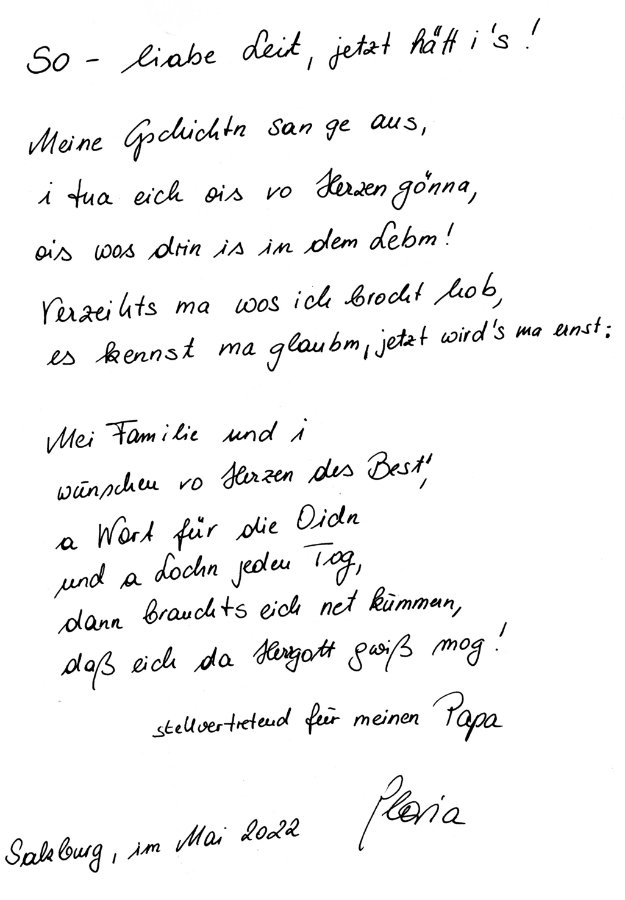 So - liabe Leit, jetzt hätt i's!
Meine Gschichtn san ge aus,
i tua eich ois vo Herzen gönna,
ois wos drin is in dem Lebm!
Verzeihts ma wos ich brocht hob,
es kennst ma glaubm, jetzt wird's ma ernst:
Mei Familie und i
wünschen vo Herzen des Best',
a Wort für die Oidn
und a Lochn jeden Tog,
dann brauchts eich net kümman,
daß eich da Herrgott gwiß mog!
stellvertretend für meinen Papa
Salzburg, im Mai 2022